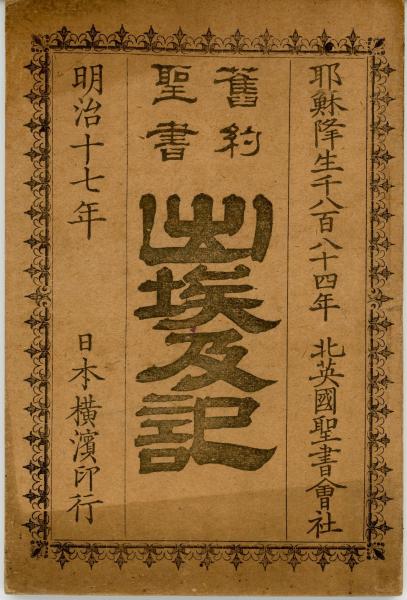 耶穌降生千八百八十四年 北英國聖書會社
舊約
聖書
出埃及記
明治十七年 日本橫濱印行